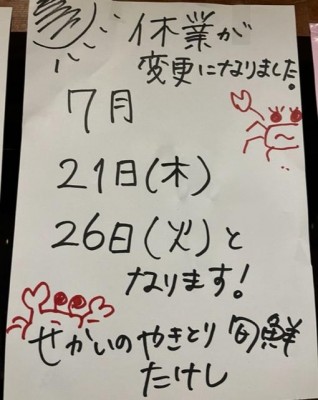 休業が
変更になりました。
7月
21日(木)
26日(火)と
なります!
せかいのやきとり旬鮮
たけし